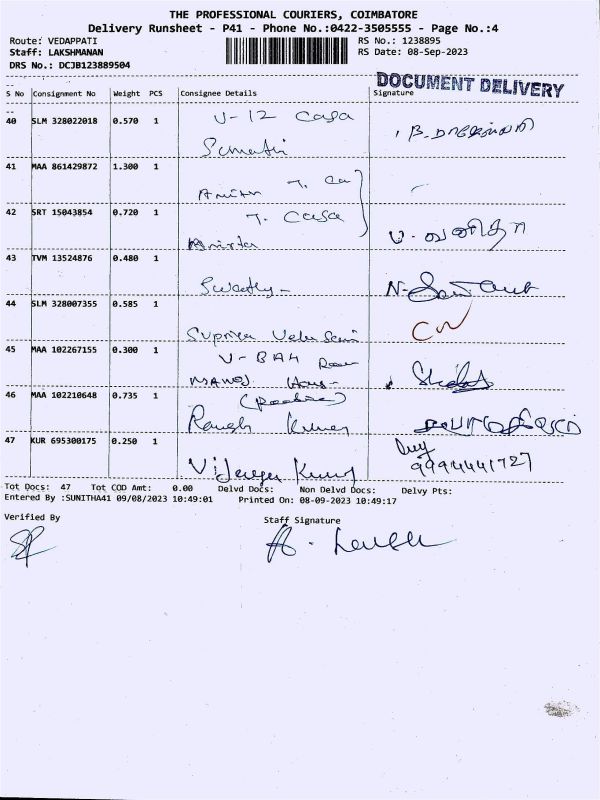 THE PROFESSIONAL COURIERS, COIMBATORE
Delivery Runsheet - P41 - Phone No.:0422-3505555 - Page No.:4
Route: VEDAPPATI RS No.: 1238895
Staff: LAKSHMANAN RS Date: 08-Sep-2023
DRS No.: DCJB123889504
DOCUMENT DELIVERY
S No Consignment No Weight PCS Consignee Details Signature
U-12 Casa
40 SLM 328022018 0.570 1
Sumathi
41 MAA 861429872 1.300 1
7. Ca
7. Casa
42 SRT 15043854 0.720 1
Anitha
43 TVM 13524876 0.480 1
Swathy-
44 SLM 328007355 0.585 1
CW
Supriya Velu Sami
45 MAA 102267155 0.300 1
V-BAH
46 MAA 102210648 0.735 1
Kumar
47 KUR 695300175 0.250 1
9994441727
Vijaya Kumar
Tot Docs: 47 Tot COD Amt: 0.00 Delvd Docs: Non Delvd Docs: Delvy Pts:
Entered By :SUNITHA41 09/08/2023 10:49:01 Printed On: 08-09-2023 10:49:17
Verified By Staff Signature